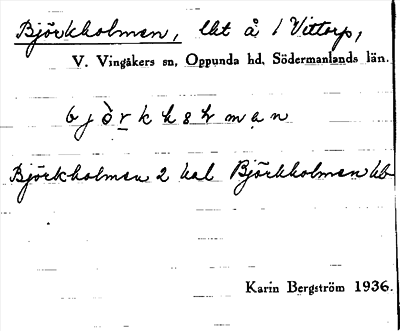 Björkholmen, lht å 1 Vittorp,
V. Vingåkers sn, Oppunda hd, Södermanlands län.
Björkholmen 2 kal Björkholmen
Karin Bergström 1936.